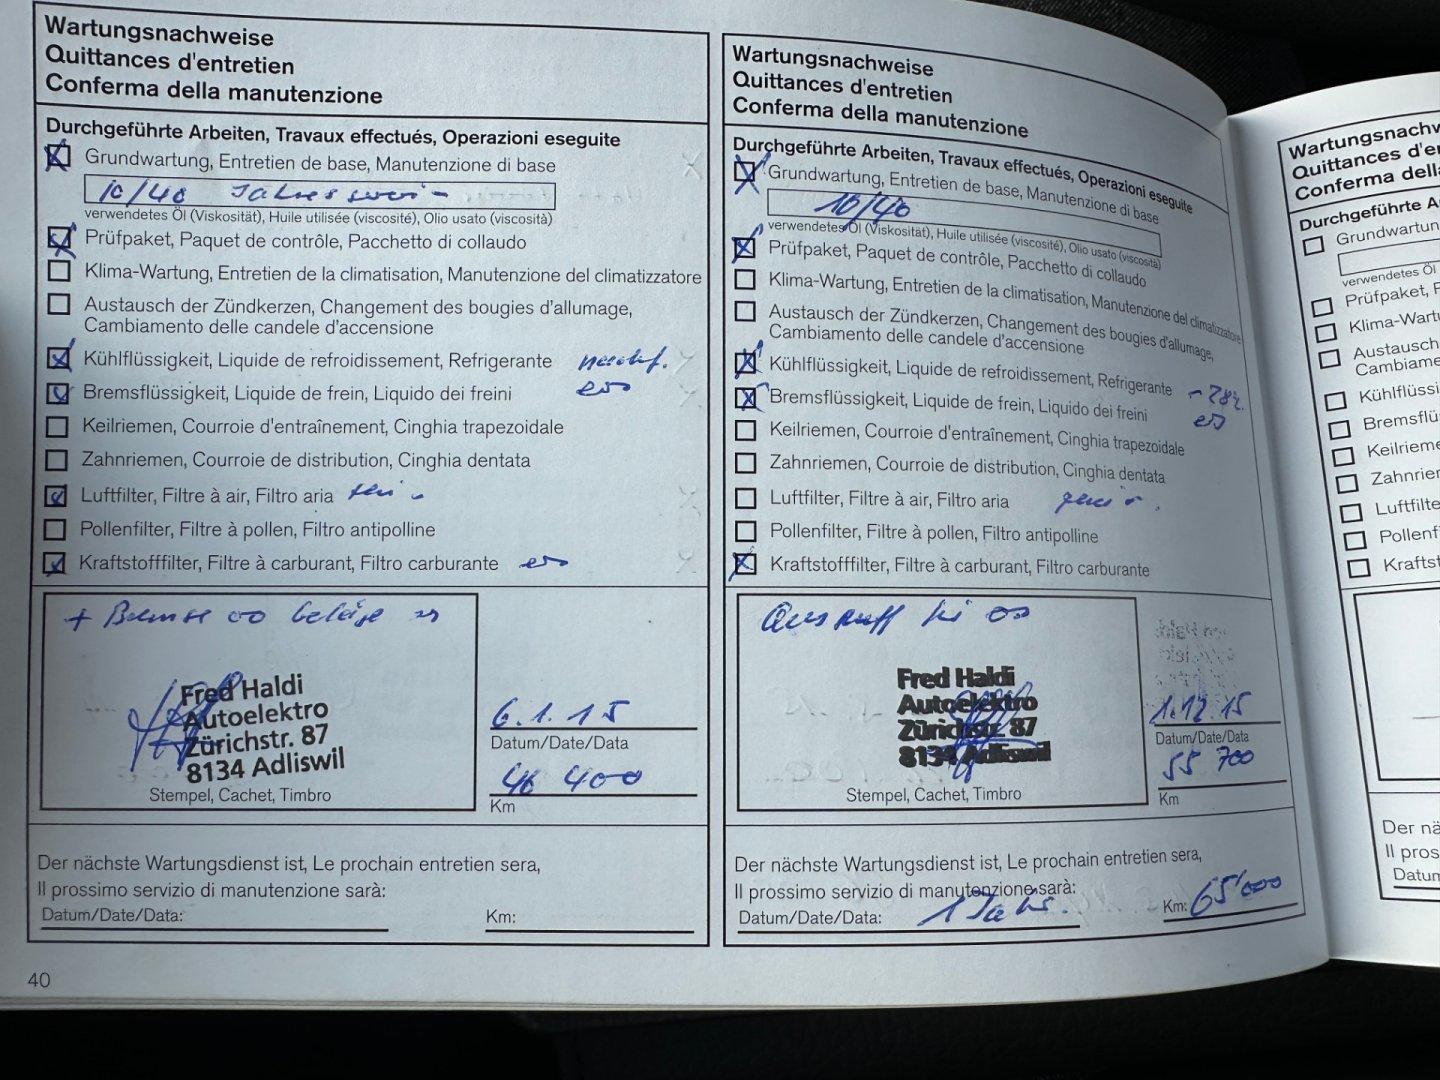 Wartungsnachweise
Quittances d'entretien
Conferma della manutenzione
Durchgeführte Arbeiten, Travaux effectués, Operazioni eseguite
Grundwartung, Entretien de base, Manutenzione di base
10/40
verwendetes Öl (Viskosität), Huile utilisée (viscosité), Olio usato (viscosità)
Prüfpaket, Paquet de contrôle, Pacchetto di collaudo
Klima-Wartung, Entretien de la climatisation, Manutenzione del climatizzatore
Austausch der Zündkerzen, Changement des bougies d'allumage,
Cambiamento delle candele d'accensione
Kühlflüssigkeit, Liquide de refroidissement, Refrigerante
Bremsflüssigkeit, Liquide de frein, Liquido dei freini
Keilriemen, Courroie d'entraînement, Cinghia trapezoidale
Zahnriemen, Courroie de distribution, Cinghia dentata
Luftfilter, Filtre à air, Filtro aria
Pollenfilter, Filtre à pollen, Filtro antipolline
Kraftstofffilter, Filtre à carburant, Filtro carburante
Fred Haldi
Autoelektro
Zürichstr. 87
8134 Adliswil
Stempel, Cachet, Timbro
6.1.15
Datum/Date/Data
46 400
Km
Der nächste Wartungsdienst ist, Le prochain entretien sera,
Il prossimo servizio di manutenzione sarà:
Datum/Date/Data:
Km:
40
Wartungsnachweise
Quittances d'entretien
Conferma della manutenzione
Durchgeführte Arbeiten, Travaux effectués, Operazioni eseguite
Grundwartung, Entretien de base, Manutenzione di base
10/40
verwendetes Öl (Viskosität), Huile utilisée (viscosité), Olio usato (viscosità)
Prüfpaket, Paquet de contrôle, Pacchetto di collaudo
Klima-Wartung, Entretien de la climatisation, Manutenzione del climatizzatore
Austausch der Zündkerzen, Changement des bougies d'allumage,
Cambiamento delle candele d'accensione
Kühlflüssigkeit, Liquide de refroidissement, Refrigerante
Bremsflüssigkeit, Liquide de frein, Liquido dei freini
Keilriemen, Courroie d'entraînement, Cinghia trapezoidale
Zahnriemen, Courroie de distribution, Cinghia dentata
Luftfilter, Filtre à air, Filtro aria
Pollenfilter, Filtre à pollen, Filtro antipolline
Kraftstofffilter, Filtre à carburant, Filtro carburante
Auspuff
Fred Haldi
Autoelektro
Zürichstr. 87
8134 Adliswil
Stempel, Cachet, Timbro
1.12.15
Datum/Date/Data
55 700
Km
Der nächste Wartungsdienst ist, Le prochain entretien sera,
Il prossimo servizio di manutenzione sarà:
Datum/Date/Data: 1 Jahr.
Km: 65'000
Wartungsnachw
Quittances d'e
Conferma dell
Durchgeführte A
Grundwartun
verwendetes Öl
Prüfpaket, P
Klima-Wart
Austausch
Cambiame
Kühlflüssi
Bremsflü
Keilrieme
Zahnriem
Luftfilter
Pollenf
Kraftst
Der nä
Il pros
Datum